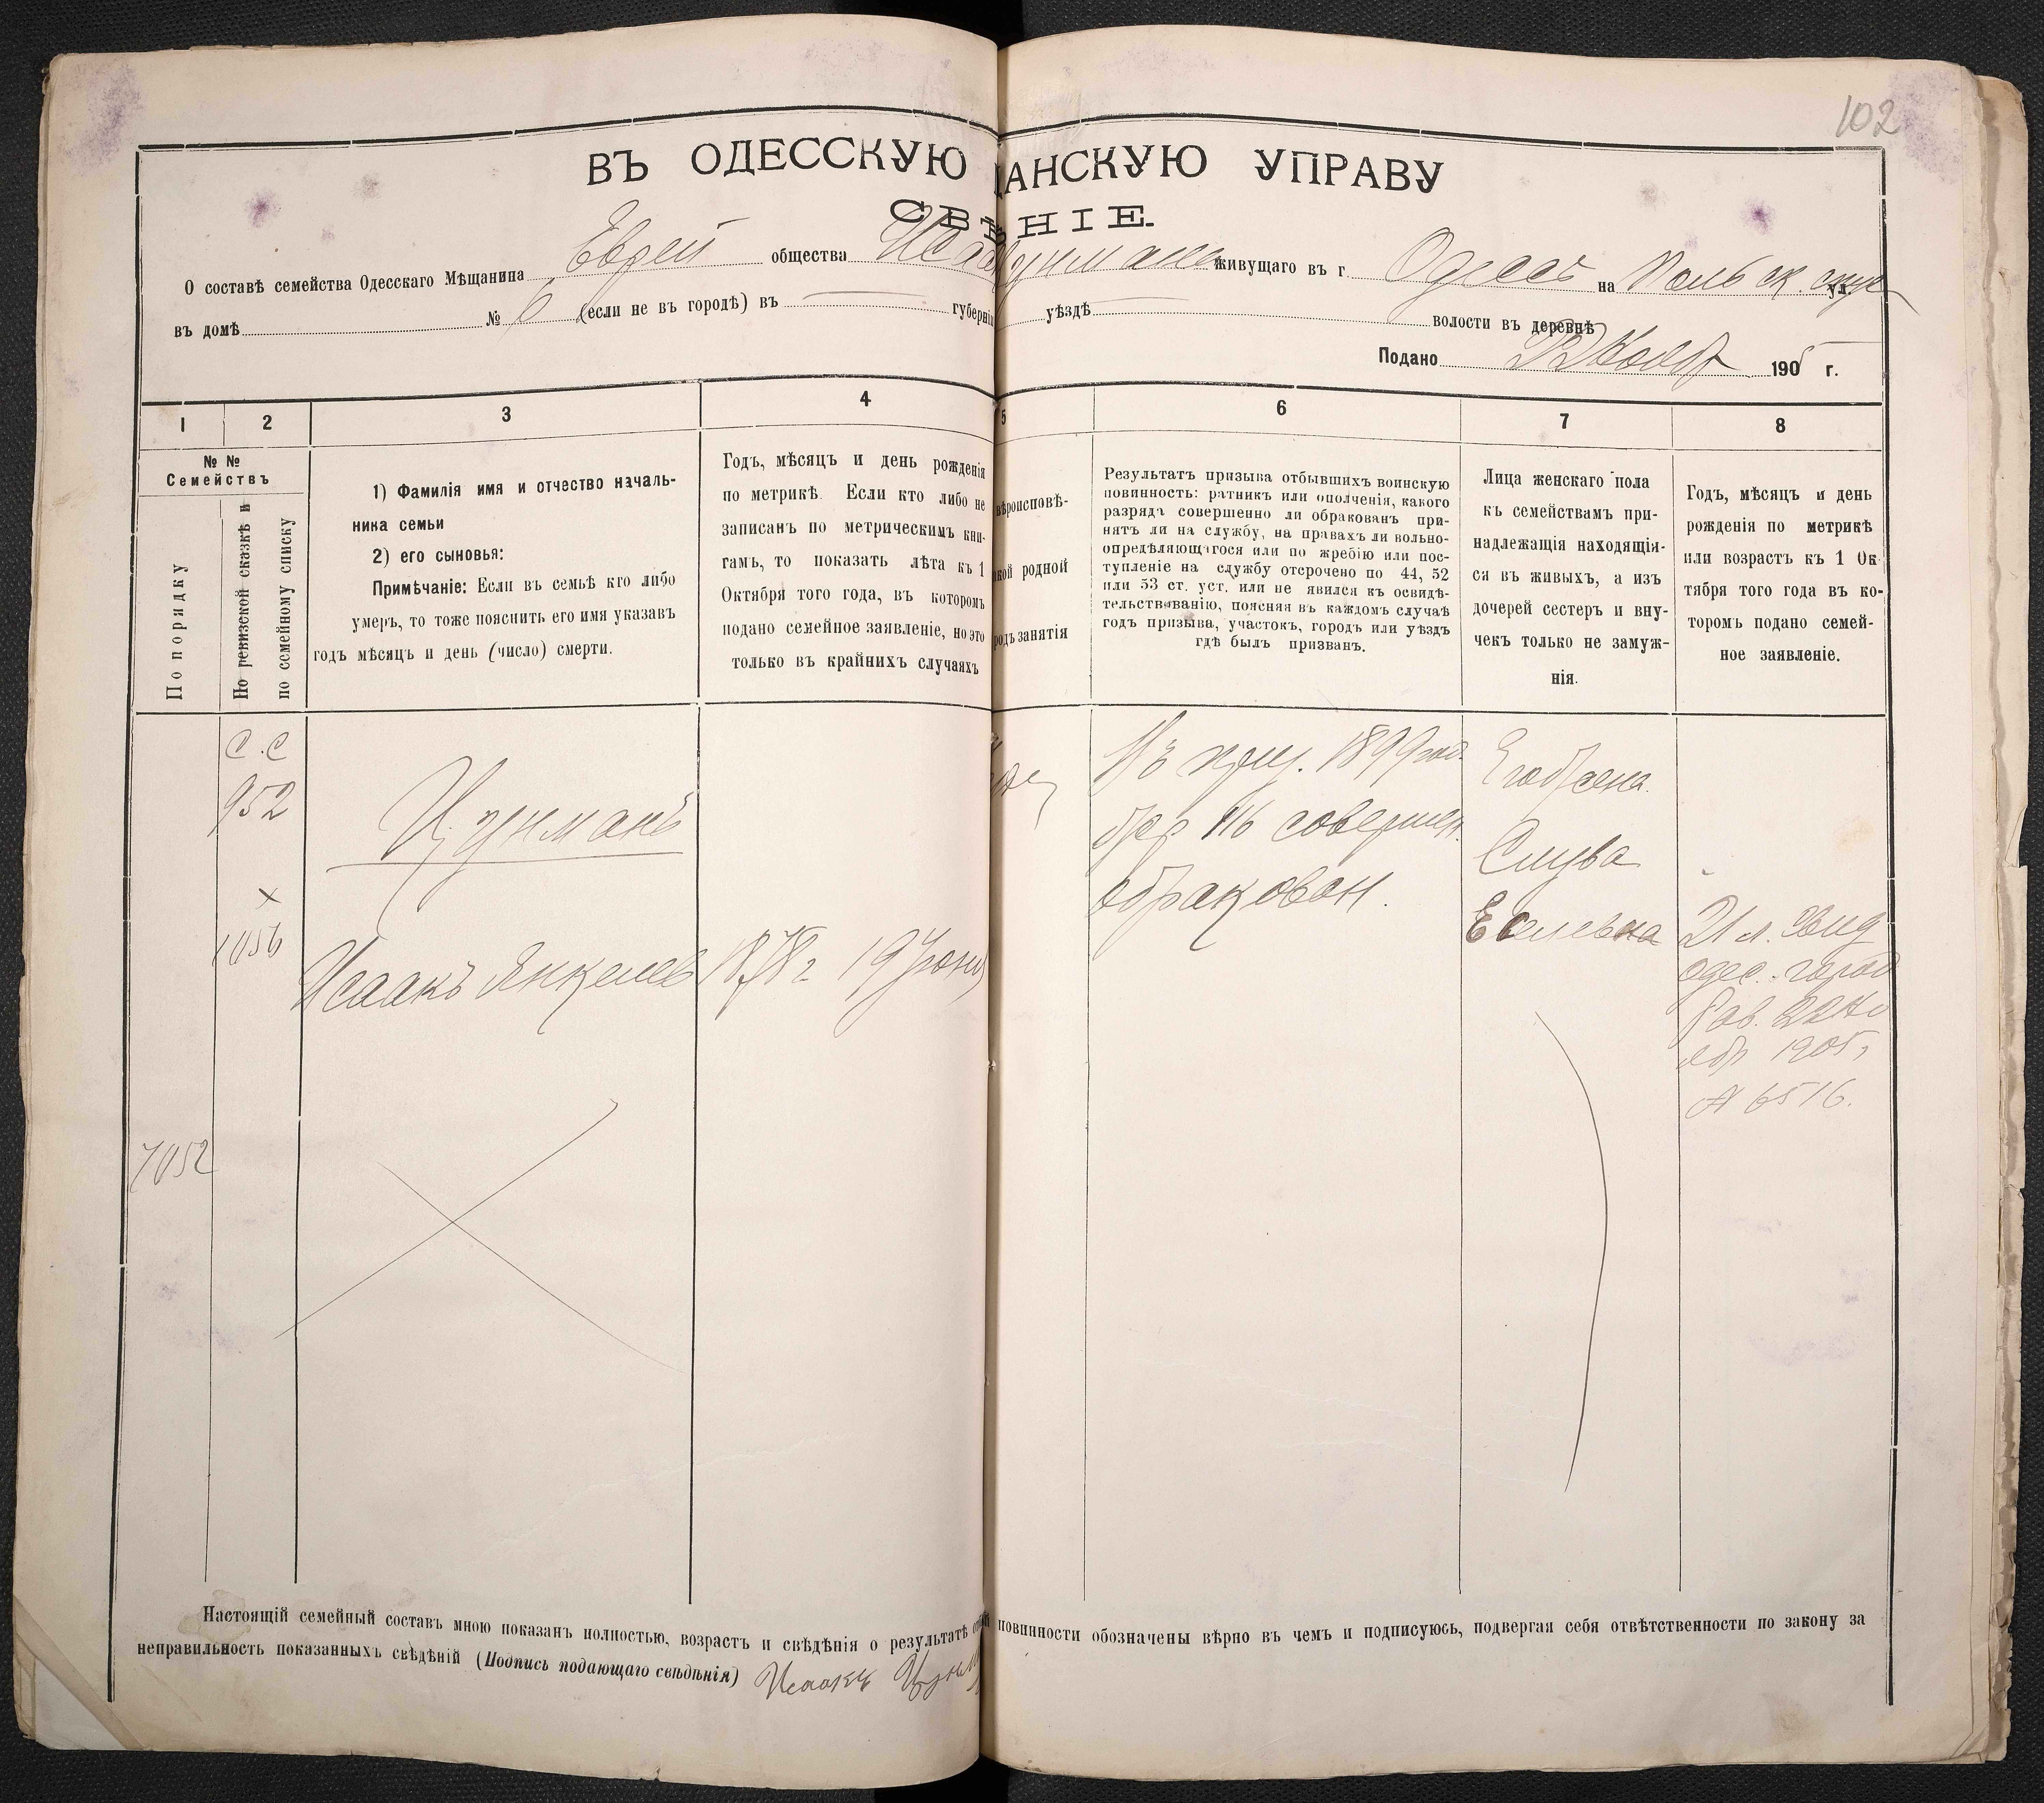 102
ВЪ ОДЕССКУЮ ЩАНСКУЮ УПРАВУ
СВѢ НІЕ.
О составѣ семейства Одесскаго Мѣщанина Еврей общества Исаа Цунмана живущаго въ г Одессѣ на Польск. спуск ул.
въ домѣ № 6 (если не въ городѣ) въ губерніи уѣздѣ волости въ деревнѣ
Подано 22 Нояб 1905 г.
1 2 3 4 5 6 7 8
№ №
Семействъ
По порядку
По ревизской сказкѣ и
по семейному списку
1) Фамилія имя и отчество началь-
ника семьи
2) его сыновья:
Примѣчаніе: Если въ семьѣ кто либо
умеръ, то тоже пояснить его имя указавъ
годъ мѣсяцъ и день (число) смерти.
Годъ, мѣсяцъ и день рожденія
по метрикѣ. Если кто либо не
записанъ по метрическимъ кни-
гамъ, то показать лѣта къ 1
Октября того года, въ которомъ
подано семейное заявленіе, но это
только въ крайнихъ случаяхъ
вѣроисповѣ-
кой родной
родъ занятія
Результатъ призыва отбывшихъ воинскую
повинность: ратникъ или ополченія, какого
разряда совершенно ли обракованъ при-
нятъ ли на службу, на правахъ ли вольно-
опредѣляющагося или по жребію или пос-
тупленіе на службу отсрочено по 44, 52
или 53 ст. уст. или не явился къ освидѣ-
тельствованію, поясняя въ каждомъ случаѣ
годъ призыва, участокъ, городъ или уѣздъ
гдѣ былъ призванъ.
Лица женскаго пола
къ семействамъ при-
надлежащія находящія-
ся въ живыхъ, а изъ
дочерей сестеръ и вну-
чекъ только не замуж-
нія.
Годъ, мѣсяцъ и день
рожденія по метрикѣ
или возрастъ къ 1 Ок
тября того года въ ко-
торомъ подано семей-
ное заявленіе.
С.С
952
х
1056
Цунманъ
Исаакъ Янкелев 1878 г 19 Іюня
Въ приз. 1899 год.
жер 116 совершен.
обракован.
Его жена
Слува
Еселевна
21 л. Свид
одес. город
Рав. 22 Но
ябр 1905 г
№ 6516.
7052
Настоящій семейный составъ мною показанъ полностью, возрастъ и свѣдѣнія о результатѣ отбытія повинности обозначены вѣрно въ чемъ и подписуюсь, подвергая себя отвѣтственности по закону за
неправильность показанныхъ свѣдѣній (Подпись подающаго свѣдѣнія) Исаакъ Цунм